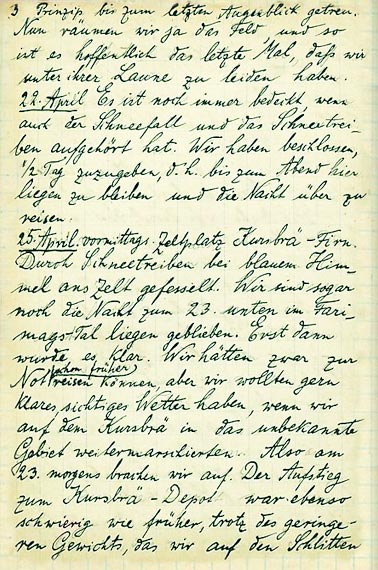 3 Prinzip bis zum letzten Augenblick getreu.
Nun räumen wir ja das Feld, und so
ist es hoffentlich das letzte Mal, daß wir
unter ihrer Laune zu leiden haben.
22. April Es ist noch immer bedeckt, wenn
auch der Schneefall und das Schneetrei-
ben aufgehört hat. Wir haben beschlossen,
1/2 Tag zuzugeben, d.h. bis zum Abend hier
liegen zu bleiben und die Nacht über zu
reisen.
25. April. vormittags. Zeltplatz Kursbrä - Firn.
Durch Schneetreiben bei blauem Him-
mel ans Zelt gefesselt. Wir sind sogar
noch die Nacht zum 23. unten im Fari-
mags-Tal liegen geblieben. Erst dann
wurde es klar. Wir hätten zwar zur
Not schon früher reisen können, aber wir wollten gern
klares, sichtiges Wetter haben, wenn wir
auf dem Kursbrä in das unbekannte
Gebiet weitermarschierten. Also am
23. morgens brachen wir auf. Der Aufstieg
zum Kursbrä - Depot war ebenso
schwierig wie früher, trotz des geringe-
ren Gewichts, das wir auf den Schlitten